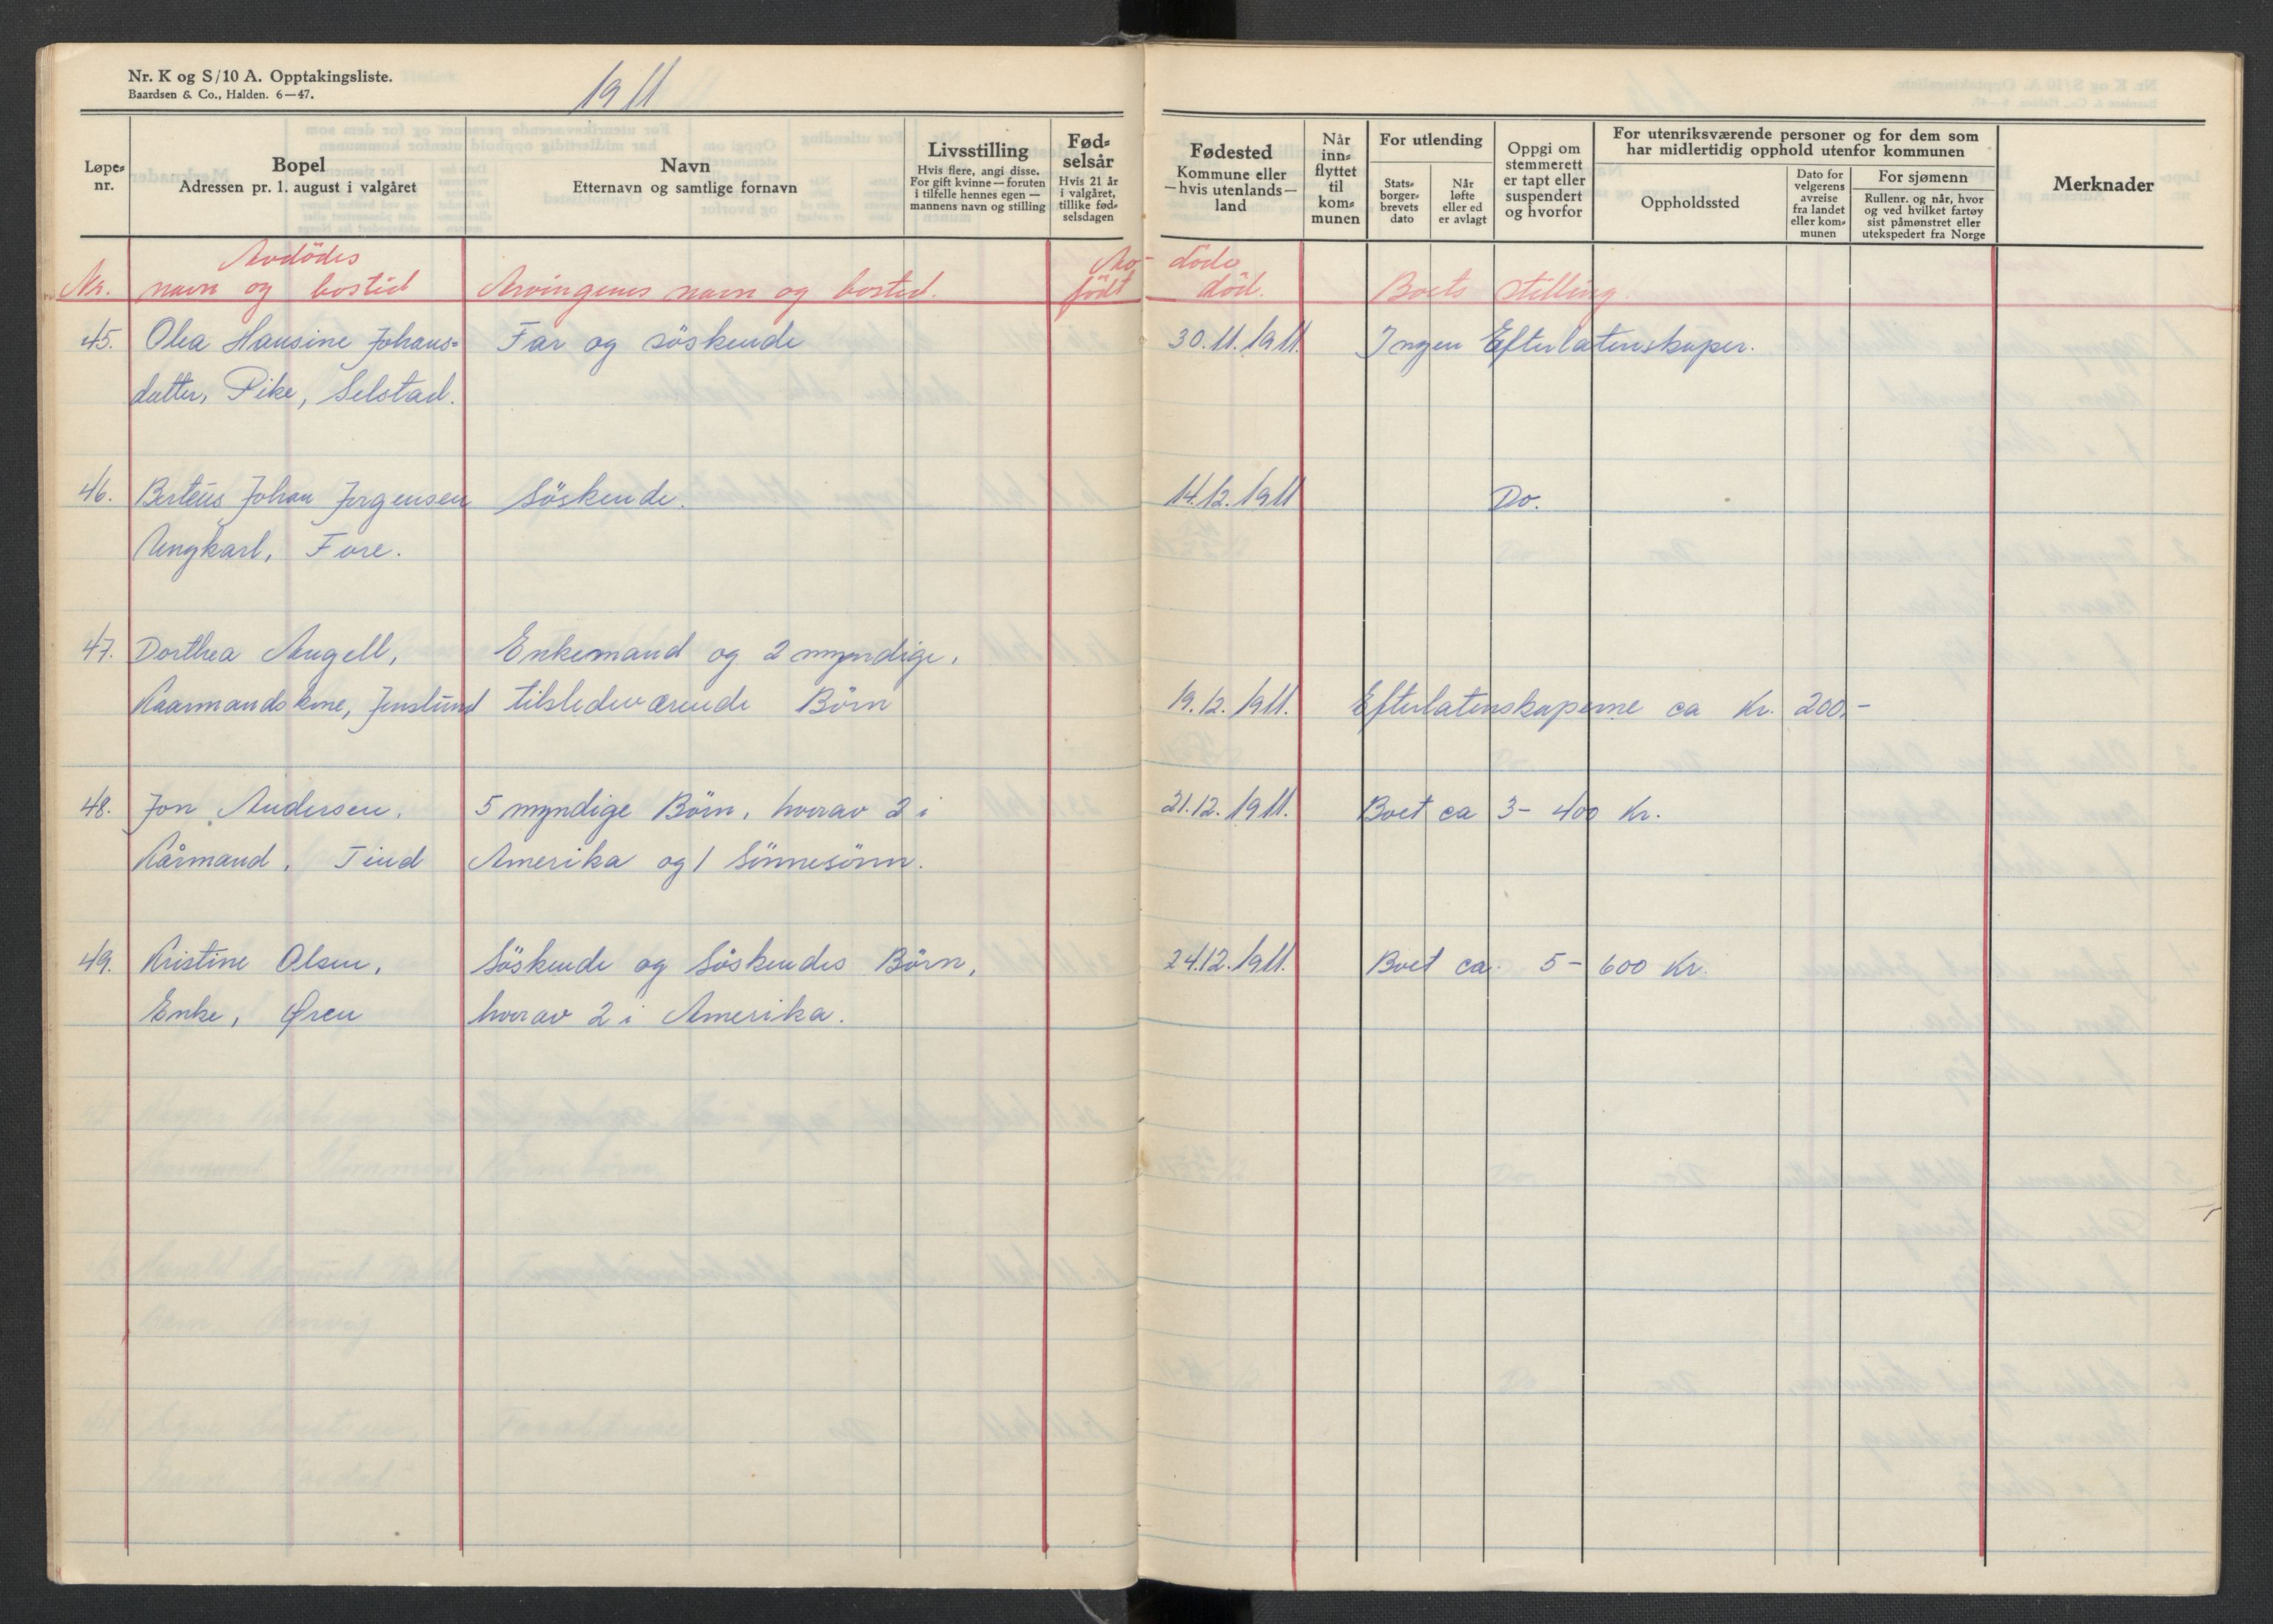 Nr. K og S/10 A. Opptakingsliste.
Baardsen & Co., Halden. 6—47.
1911
Løpe-
nr.
Bopel
Adressen pr. 1. august i valgåret
Navn
Etternavn og samtlige fornavn
Livsstilling
Hvis flere, angi disse.
For gift kvinne — foruten
i tilfelle hennes egen —
mannens navn og stilling
Fød-
selsår
Hvis 21 år
i valgåret,
tillike fød-
selsdagen
Fødested
Kommune eller
— hvis utenlands —
land
Når
inn-
flyttet
til
kom-
munen
For utlending
Stats-
borger-
brevets
dato
Når
løfte
eller ed
er avlagt
Oppgi om
stemmerett
er tapt eller
suspendert
og hvorfor
For utenriksværende personer og for dem som
har midlertidig opphold utenfor kommunen
Oppholdssted
Dato for
velgerens
avreise
fra landet
eller kom-
munen
For sjømenn
Rullenr. og når, hvor
og ved hvilket fartøy
sist påmønstret eller
utekspedert fra Norge
Merknader
Avdödes Av- döde
Nr. navn og bosted Arvingenes navn og bosted. födt död. Boets stilling.
45. Olea Hansine Johans= Far og söskende 30.11.1911. Ingen Efterlatenskaper.
datter, Pike, Selstad.
46. Berteus Johan Jørgensen Söskende. 14.12.1911 Do.
Ungkarl, Fore.
47. Dorthea Angell, Enkemand og 2 myndige,
Kaarmandskone, Jenslund tilstedeværende Börn 19.12.1911. Efterlatenskaperne ca Kr. 200,-
48. Jon Andersen, 5 myndige Börn, hvorav 2 i 21.12.1911. Boet ca 3- 400 Kr.
Kårmand, Tind Amerika og 1 Sönnesönn.
49. Kristine Olsen, Söskende og Söskendes Börn, 24.12.1911. Boet ca. 5- 600 Kr.
Enke, Øren hvorav 2 i Amerika.